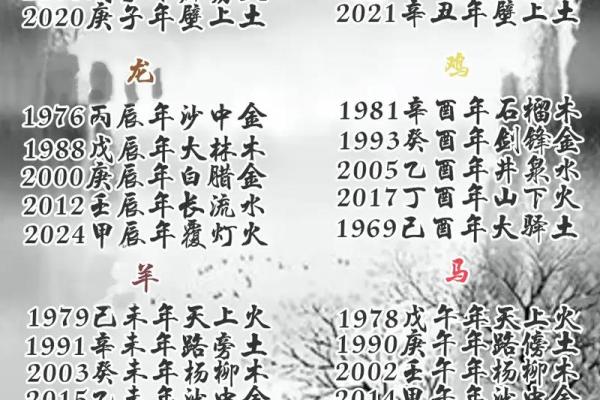 2020庚子年壁上土
2021辛丑年壁上土
龙
1976丙辰年沙中金
1988戊辰年大林木
2000庚辰年白腊金
2012壬辰年长流水
2024甲辰年覆灯火
鸡
1981辛酉年石榴木
1993癸酉年剑锋金
2005乙酉年井泉水
2017丁酉年山下火
1969己酉年大驿土
羊
1979己未年天上火
1991辛未年路旁土
2003癸未年杨柳木
2015乙未年沙中金
马
1978戊午年天上火
1990庚午年路傍土
2002壬午年杨柳木
2014甲午年沙中金